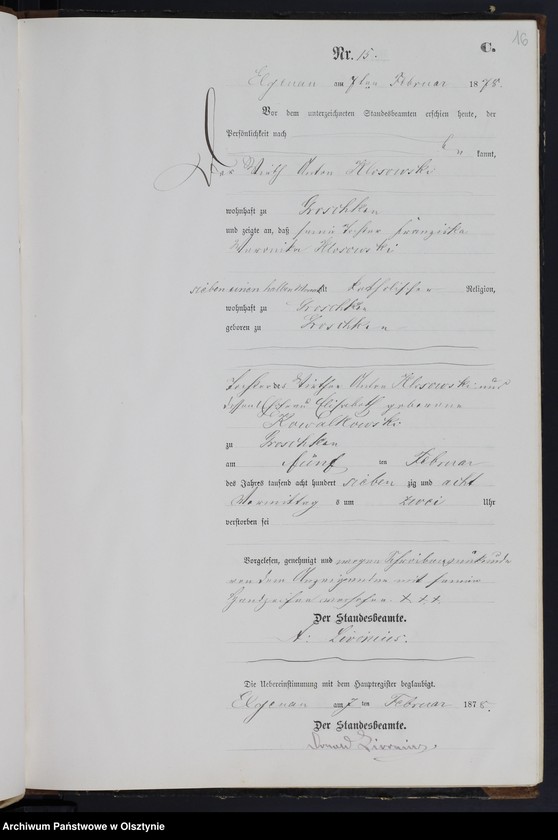 16
Nr. 15. C.
am 7ten Februar 1878.
Vor dem unterzeichneten Standesbeamten erschien heute, der
Persönlichkeit nach
kannt,
Der Wirth Anton Klosowski
wohnhaft zu Groschken
und zeigte an, daß seine Tochter Franziska
Veronika Klosowski
sieben einen halben Monat alt katholischer Religion,
wohnhaft zu Groschken
geboren zu Groschken
Tochter des Wirthen Anton Klosowski und
dessen Ehefrau Elisabeth geborene
Kowalkowski
zu Groschken
am fünf ten Februar
des Jahres tausend acht hundert sieben zig und acht
Vormittag s um zwei Uhr
verstorben sei
Vorgelesen, genehmigt und wegen Schreibensunkunde
von dem Anzeigenden mit seinem
Handzeichen versehen. + + +
Der Standesbeamte.
Die Uebereinstimmung mit dem Hauptregister beglaubigt.
am 7 ten Februar 1878.
Der Standesbeamte.
Archiwum Państwowe w Olsztynie